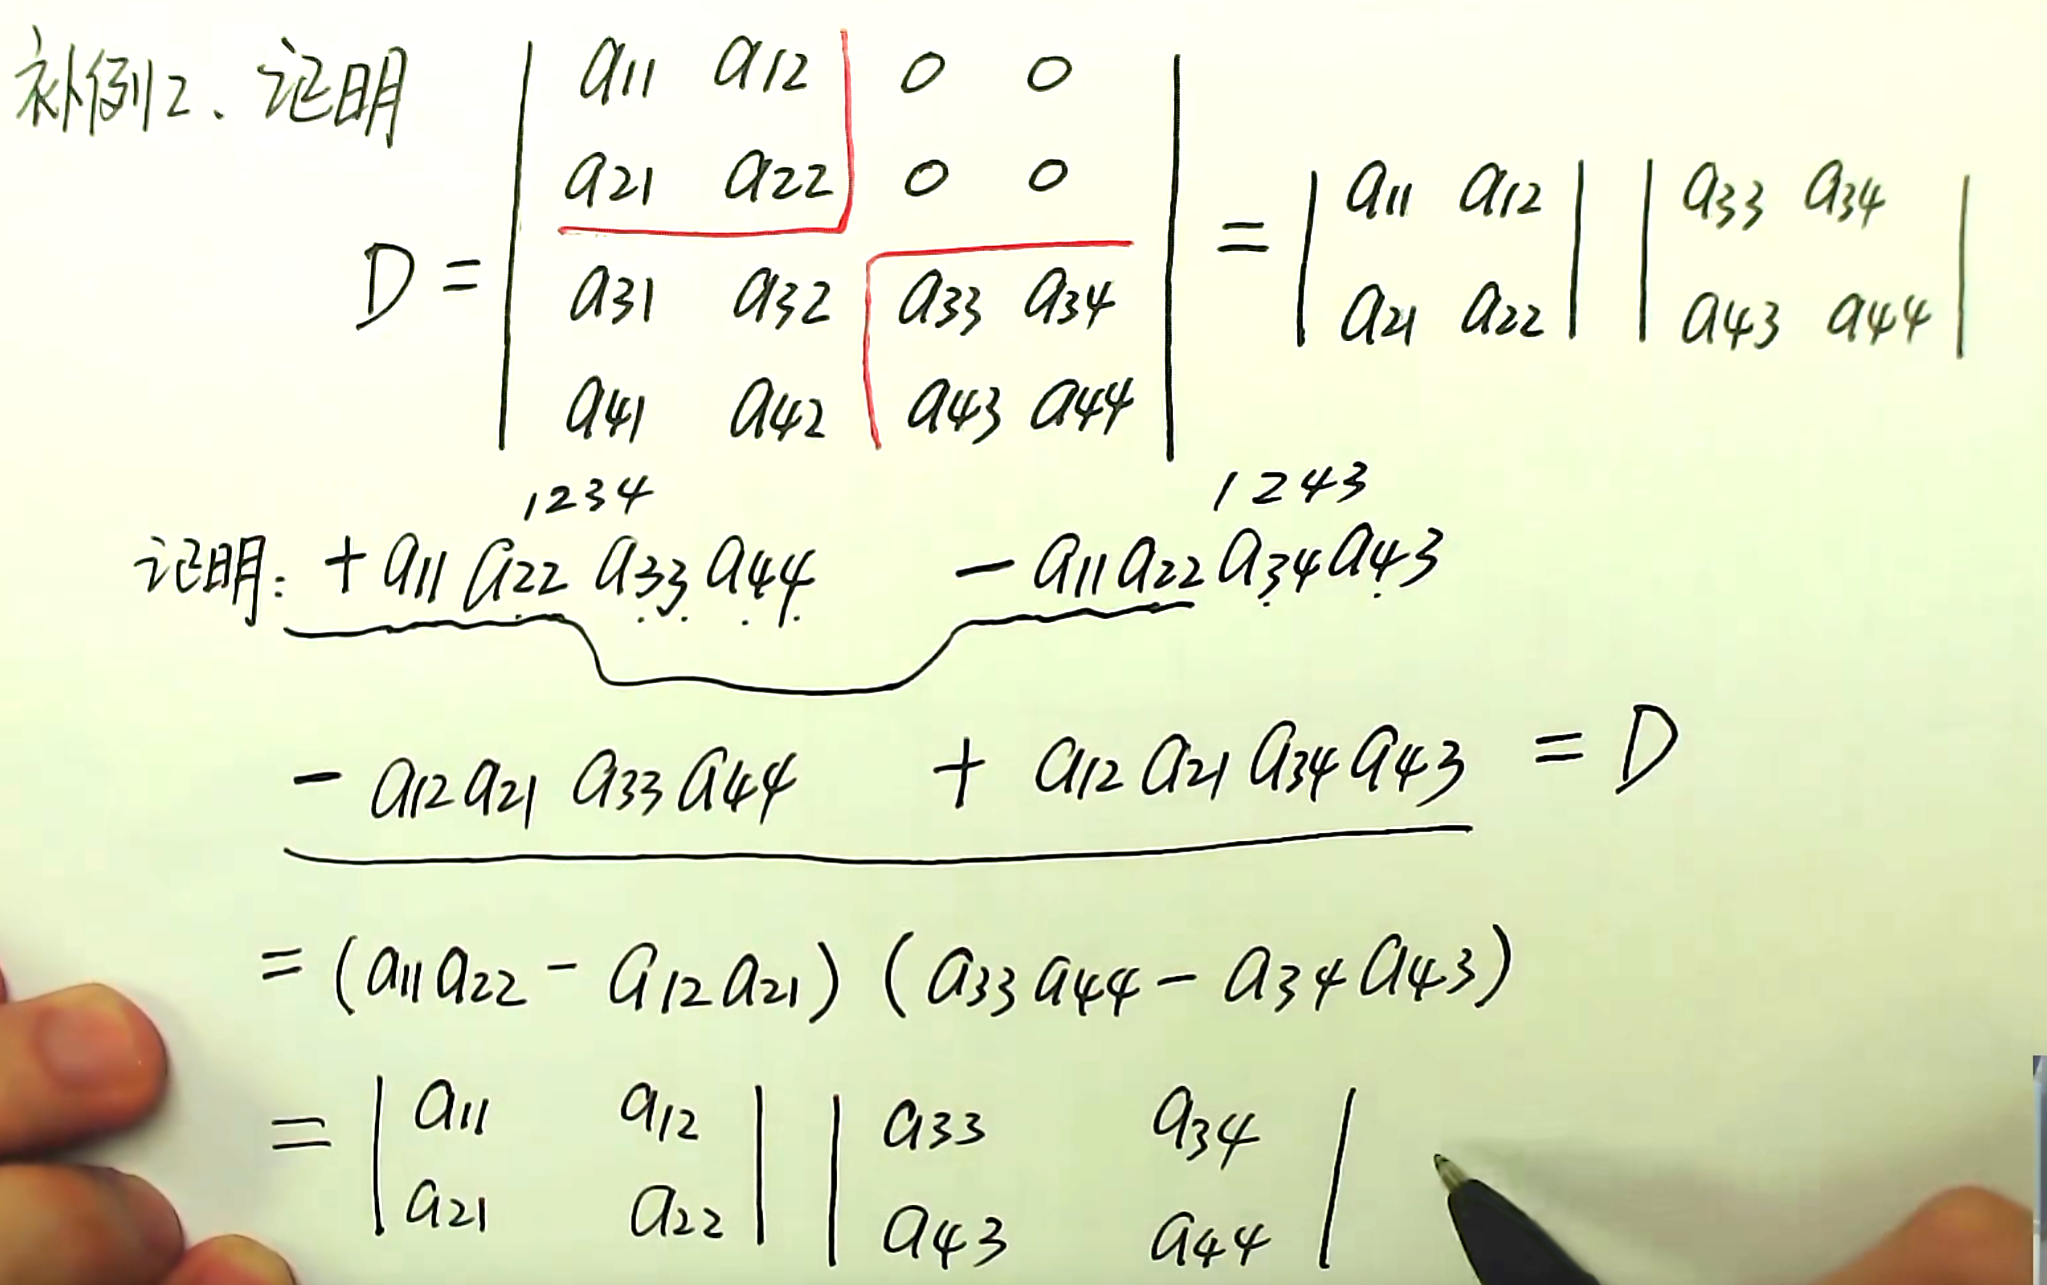 补例2、证明
D = | a11 a12 0 0 |
| a21 a22 0 0 |
| a31 a32 a33 a34 |
| a41 a42 a43 a44 |
= | a11 a12 | | a33 a34 |
| a21 a22 | | a43 a44 |
1234 1243
证明: + a11 a22 a33 a44 - a11 a22 a34 a43
- a12 a21 a33 a44 + a12 a21 a34 a43 = D
= (a11 a22 - a12 a21) (a33 a44 - a34 a43)
= | a11 a12 | | a33 a34 |
| a21 a22 | | a43 a44 |